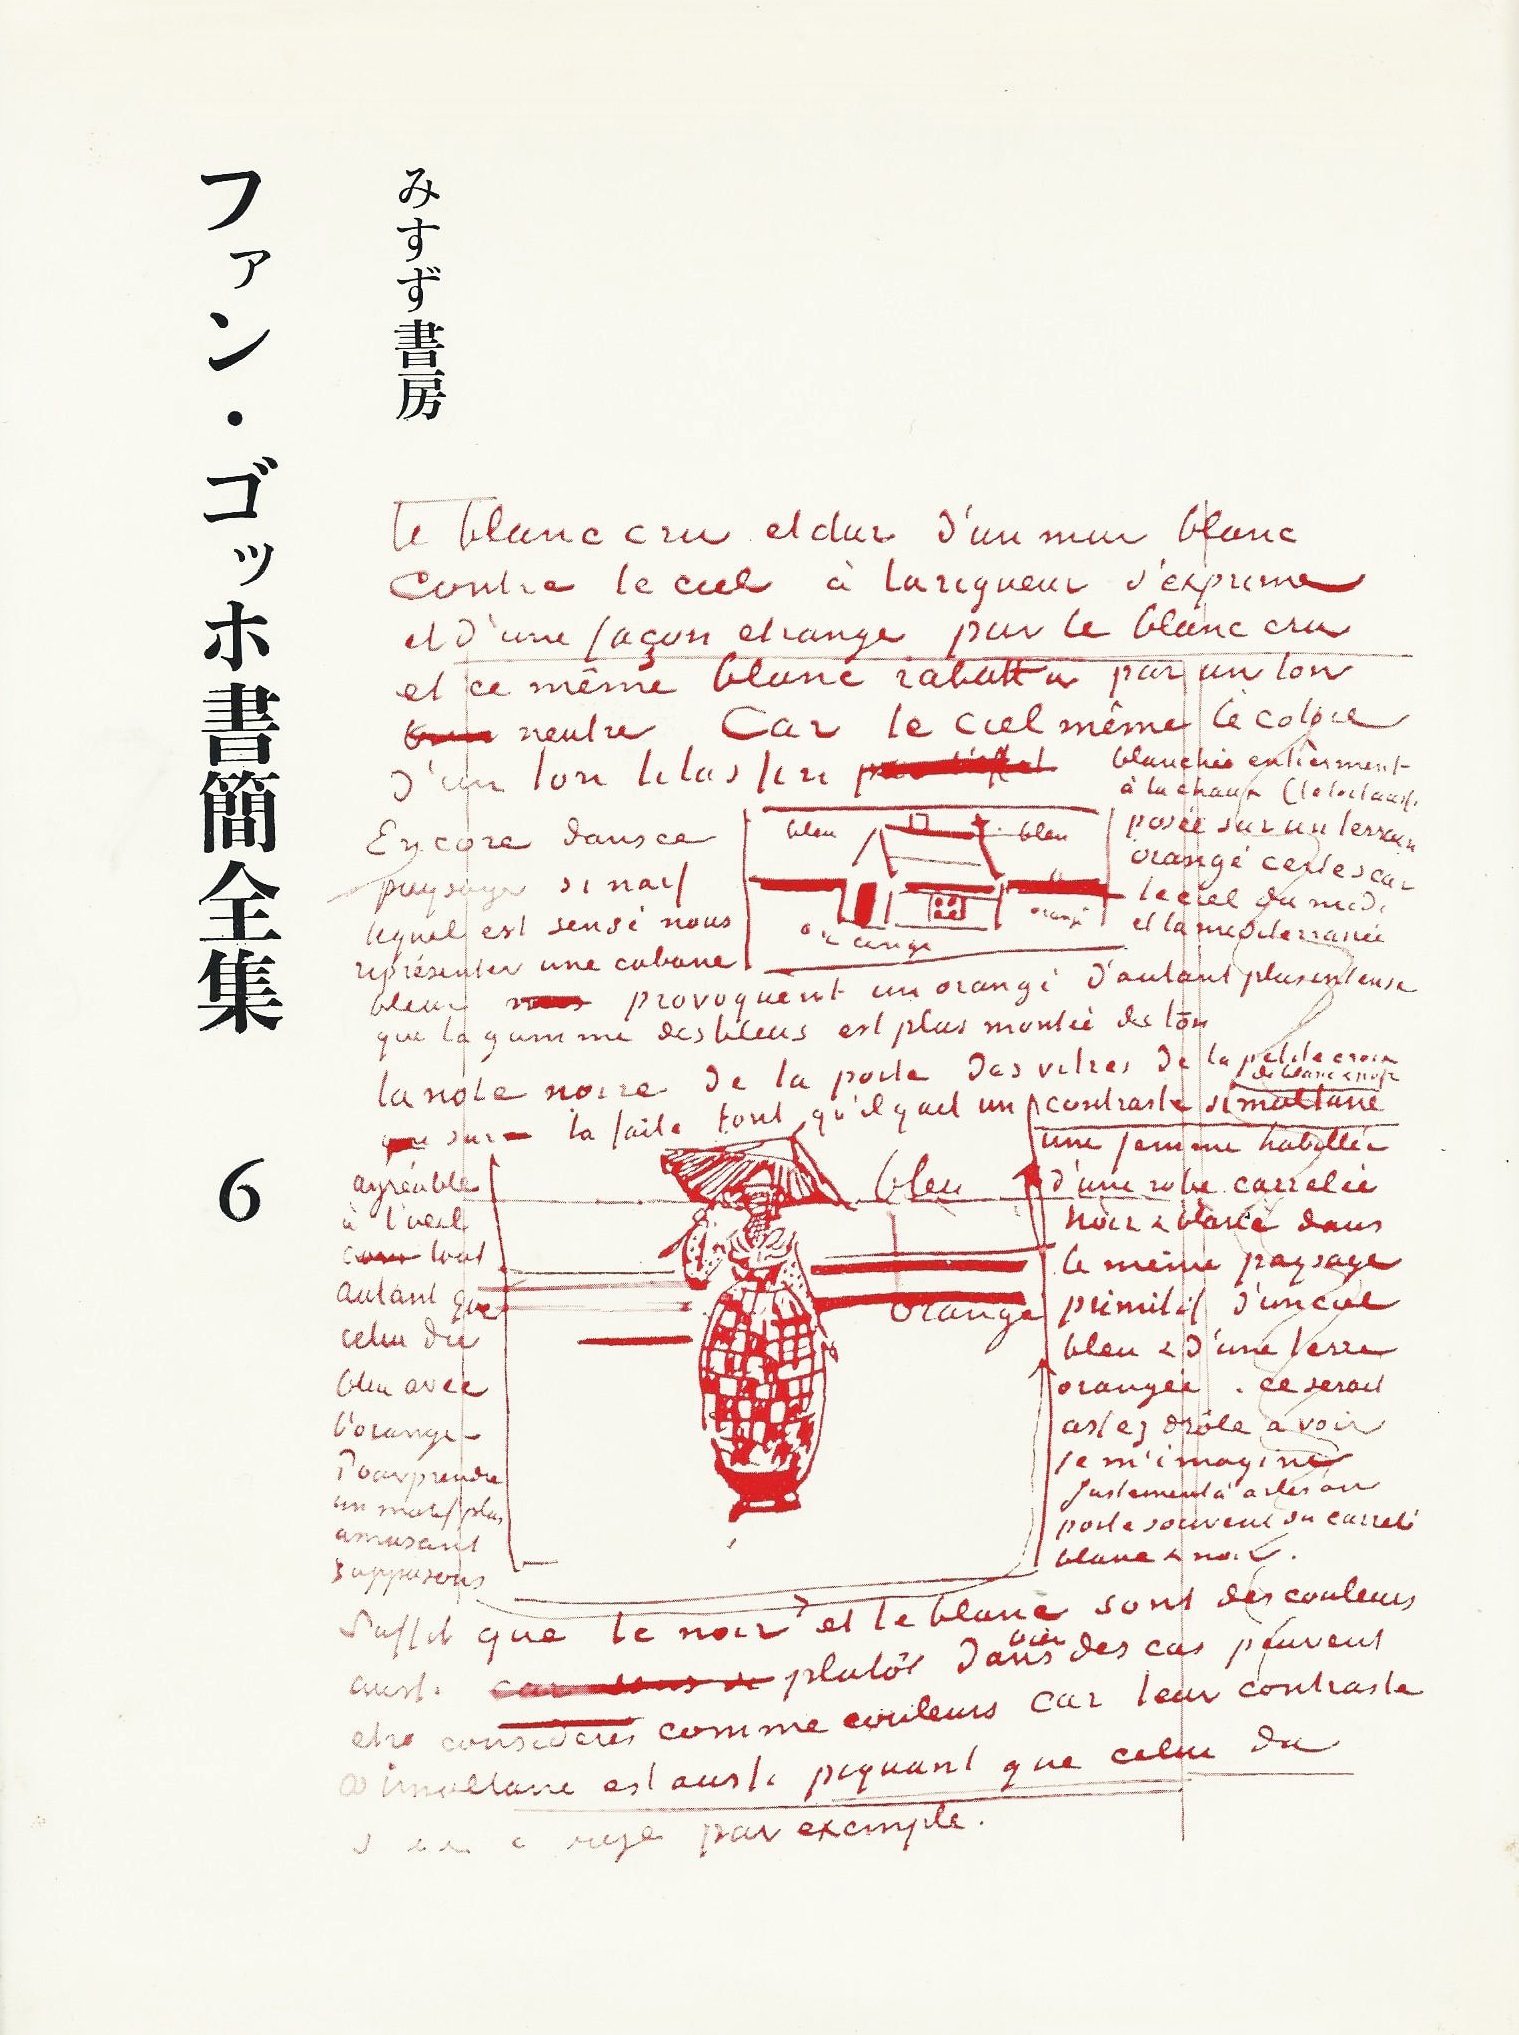 みすず書房
ファン・ゴッホ書簡全集
6
le blanc cru et dur d'un mur blanc
contre le ciel à la rigueur s'exprime
et d'une façon etrange par le blanc cru
et ce même blanc rabattu par un ton
neutre Car le ciel même le colore
d'un ton lilas fin
Encore dans ce
paysage si naif
lequel est sensé nous
représenter une cabane
blanchie entièrement
à la chaux (le toit aussi)
posée sur un terrain
orangé certes car
le ciel du midi
et la mediterranée
bleu
bleu
orange
orangé
bleue provoquent un orangé d'autant plus intense
que la gamme des bleus est plus montée de ton
la note noire de la porte des vitres de la petite croix
de blanc & noir
sur la faite font qu'il y ait un contraste simultané
agréable
à l'oeil
tout
autant que
celui du
bleu avec
l'orangé
Pour prendre
un motif plus
amusant
supposons
bleu
orange
une femme habillée
d'une robe carrelée
noir & blance dans
le même paysage
primitif d'un ciel
bleu & d'une terre
orangée. ce serait
assez drôle a voir
je m'imagine
Justement à arles on
porte souvent du carrelé
blanc & noir.
Suffit que le noir et le blanc sont des couleurs
aussi plutôt dans bien des cas peuvent
etre considerés comme couleurs car leur contraste
simultané est aussi piquant que celui du
rouge par exemple.